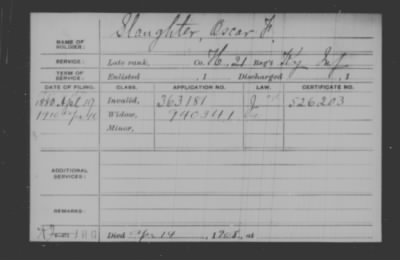 NAME OF SOLDIER: Slaughter, Oscar F.
SERVICE: Late rank, Co. H, 21 Reg't Ky Inf
TERM OF SERVICE: Enlisted , 1 Discharged , 1
DATE OF FILING. CLASS. APPLICATION NO. LAW. CERTIFICATE NO.
1880 Apl 17 Invalid, 363181 526203
1910 Widow, 940341
Minor,
ADDITIONAL SERVICES:
REMARKS:
Died Apr 14, 1908, at